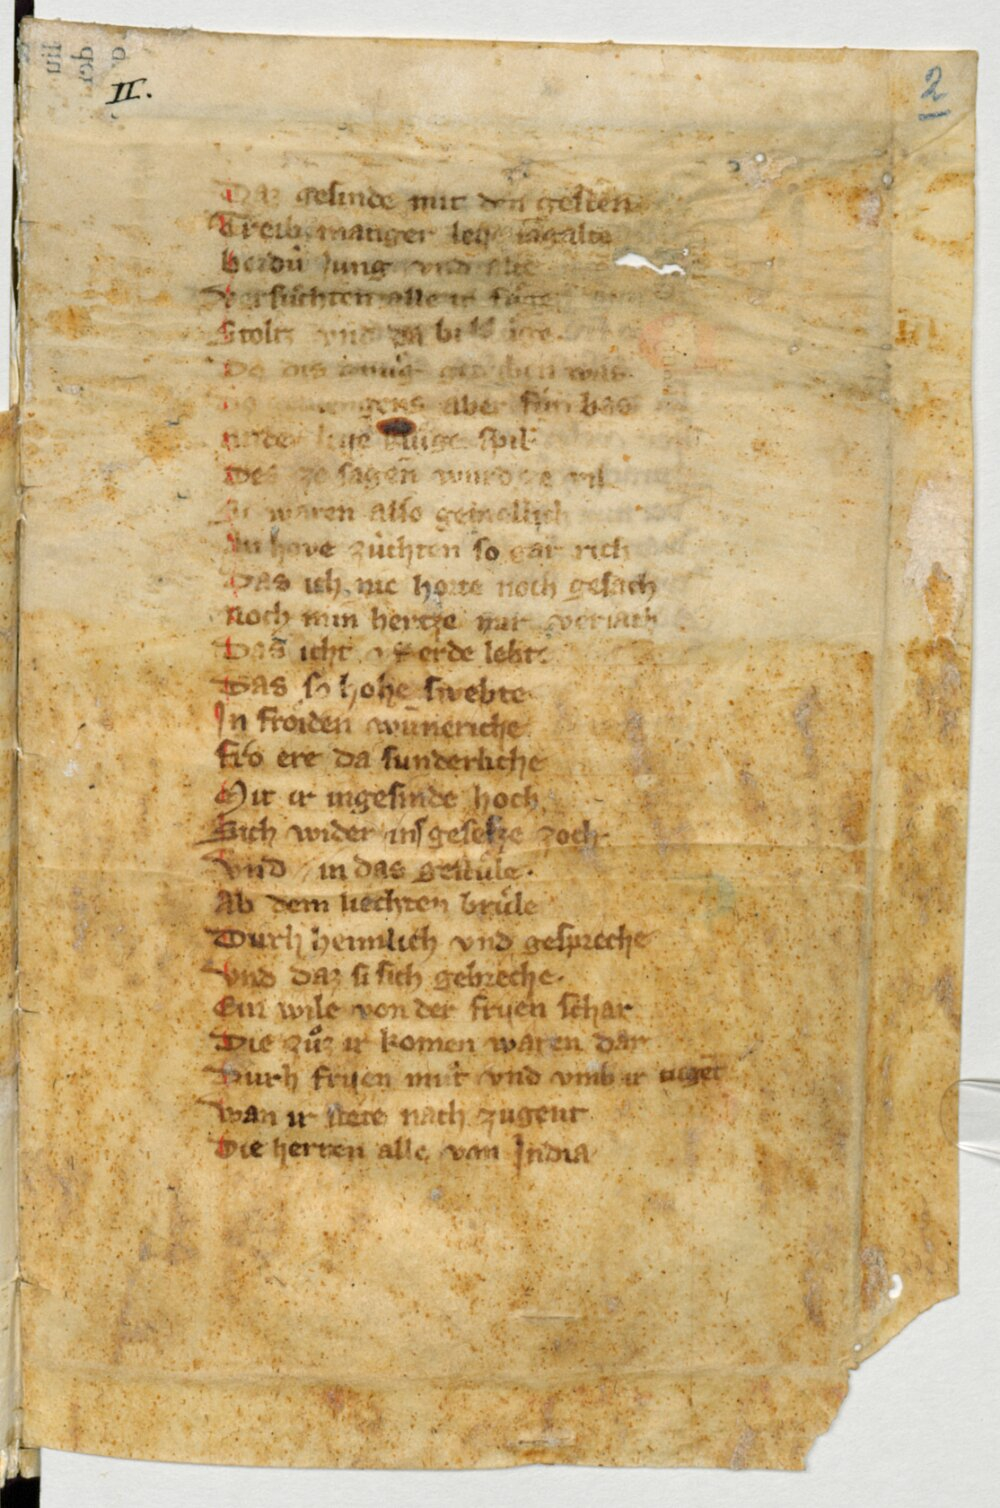 II.
2
Daz gesinde mit den gesten
Treib manger ley
beidú iung vnd alte
Versuͦchten alle ir
Stoltz vnd da bi
Da dis
aber fúrbas
spil
Des ze sagen wurde ze vil
Si waren also gemellich
An hove zúchten so gar rich
Das ich nie horte noch gesach
Noch min hertze mir veriach
Das icht vf erde lebt
Das so hohe swebte
In froͤiden wūneriche
fro ere da sunderliche
Mit ir ingesinde hoch
Sich wider ins geseſze zoch
vnd in das gestuͤle.
Ab dem liechten bruͤle
Durh heimlich vnd gespreche
Vnd daz si sich gebreche.
Ein wile von der fryen schar
Die zuͦz ir komen waren dar
Durh fryen mut vnd vmb ir tuget
Wan ir stete nach zugent
Die herren alle von India